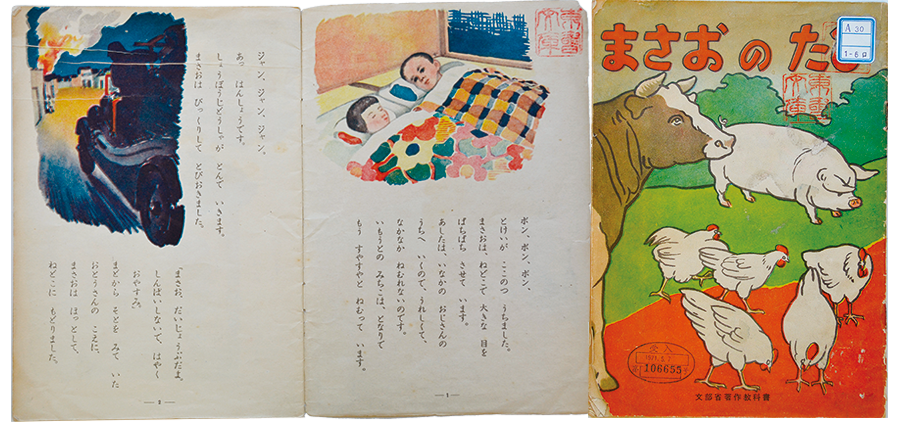 まさおのた
A 30
東書文庫
106655
文部省著作教科書
東書文庫
ボン、ボン、ボン、
とけいが ここのつ うちました。
まさおは、ねどこで 大きな 目を
ぱちぱち させて います。
あしたは、いなかの おじさんの
うちへ いくので、うれしくて、
なかなか ねむれないのです。
いもうとの みちこは、となりで
もう すやすやと ねむって います。
— 1 —
ジャン、ジャン、ジャン。
あっ はんしょうです。
しょうぼうじどうしゃが とんで いきます。
まさおは びっくりして とびおきました。
「まさお、だいじょうぶだよ。
しんぱいしないで、はやく
おやすみ。」
まどから そとを みて いた
おとうさんの こえに、
まさおは ほっとして、
ねどこに もどりました。
— 2 —